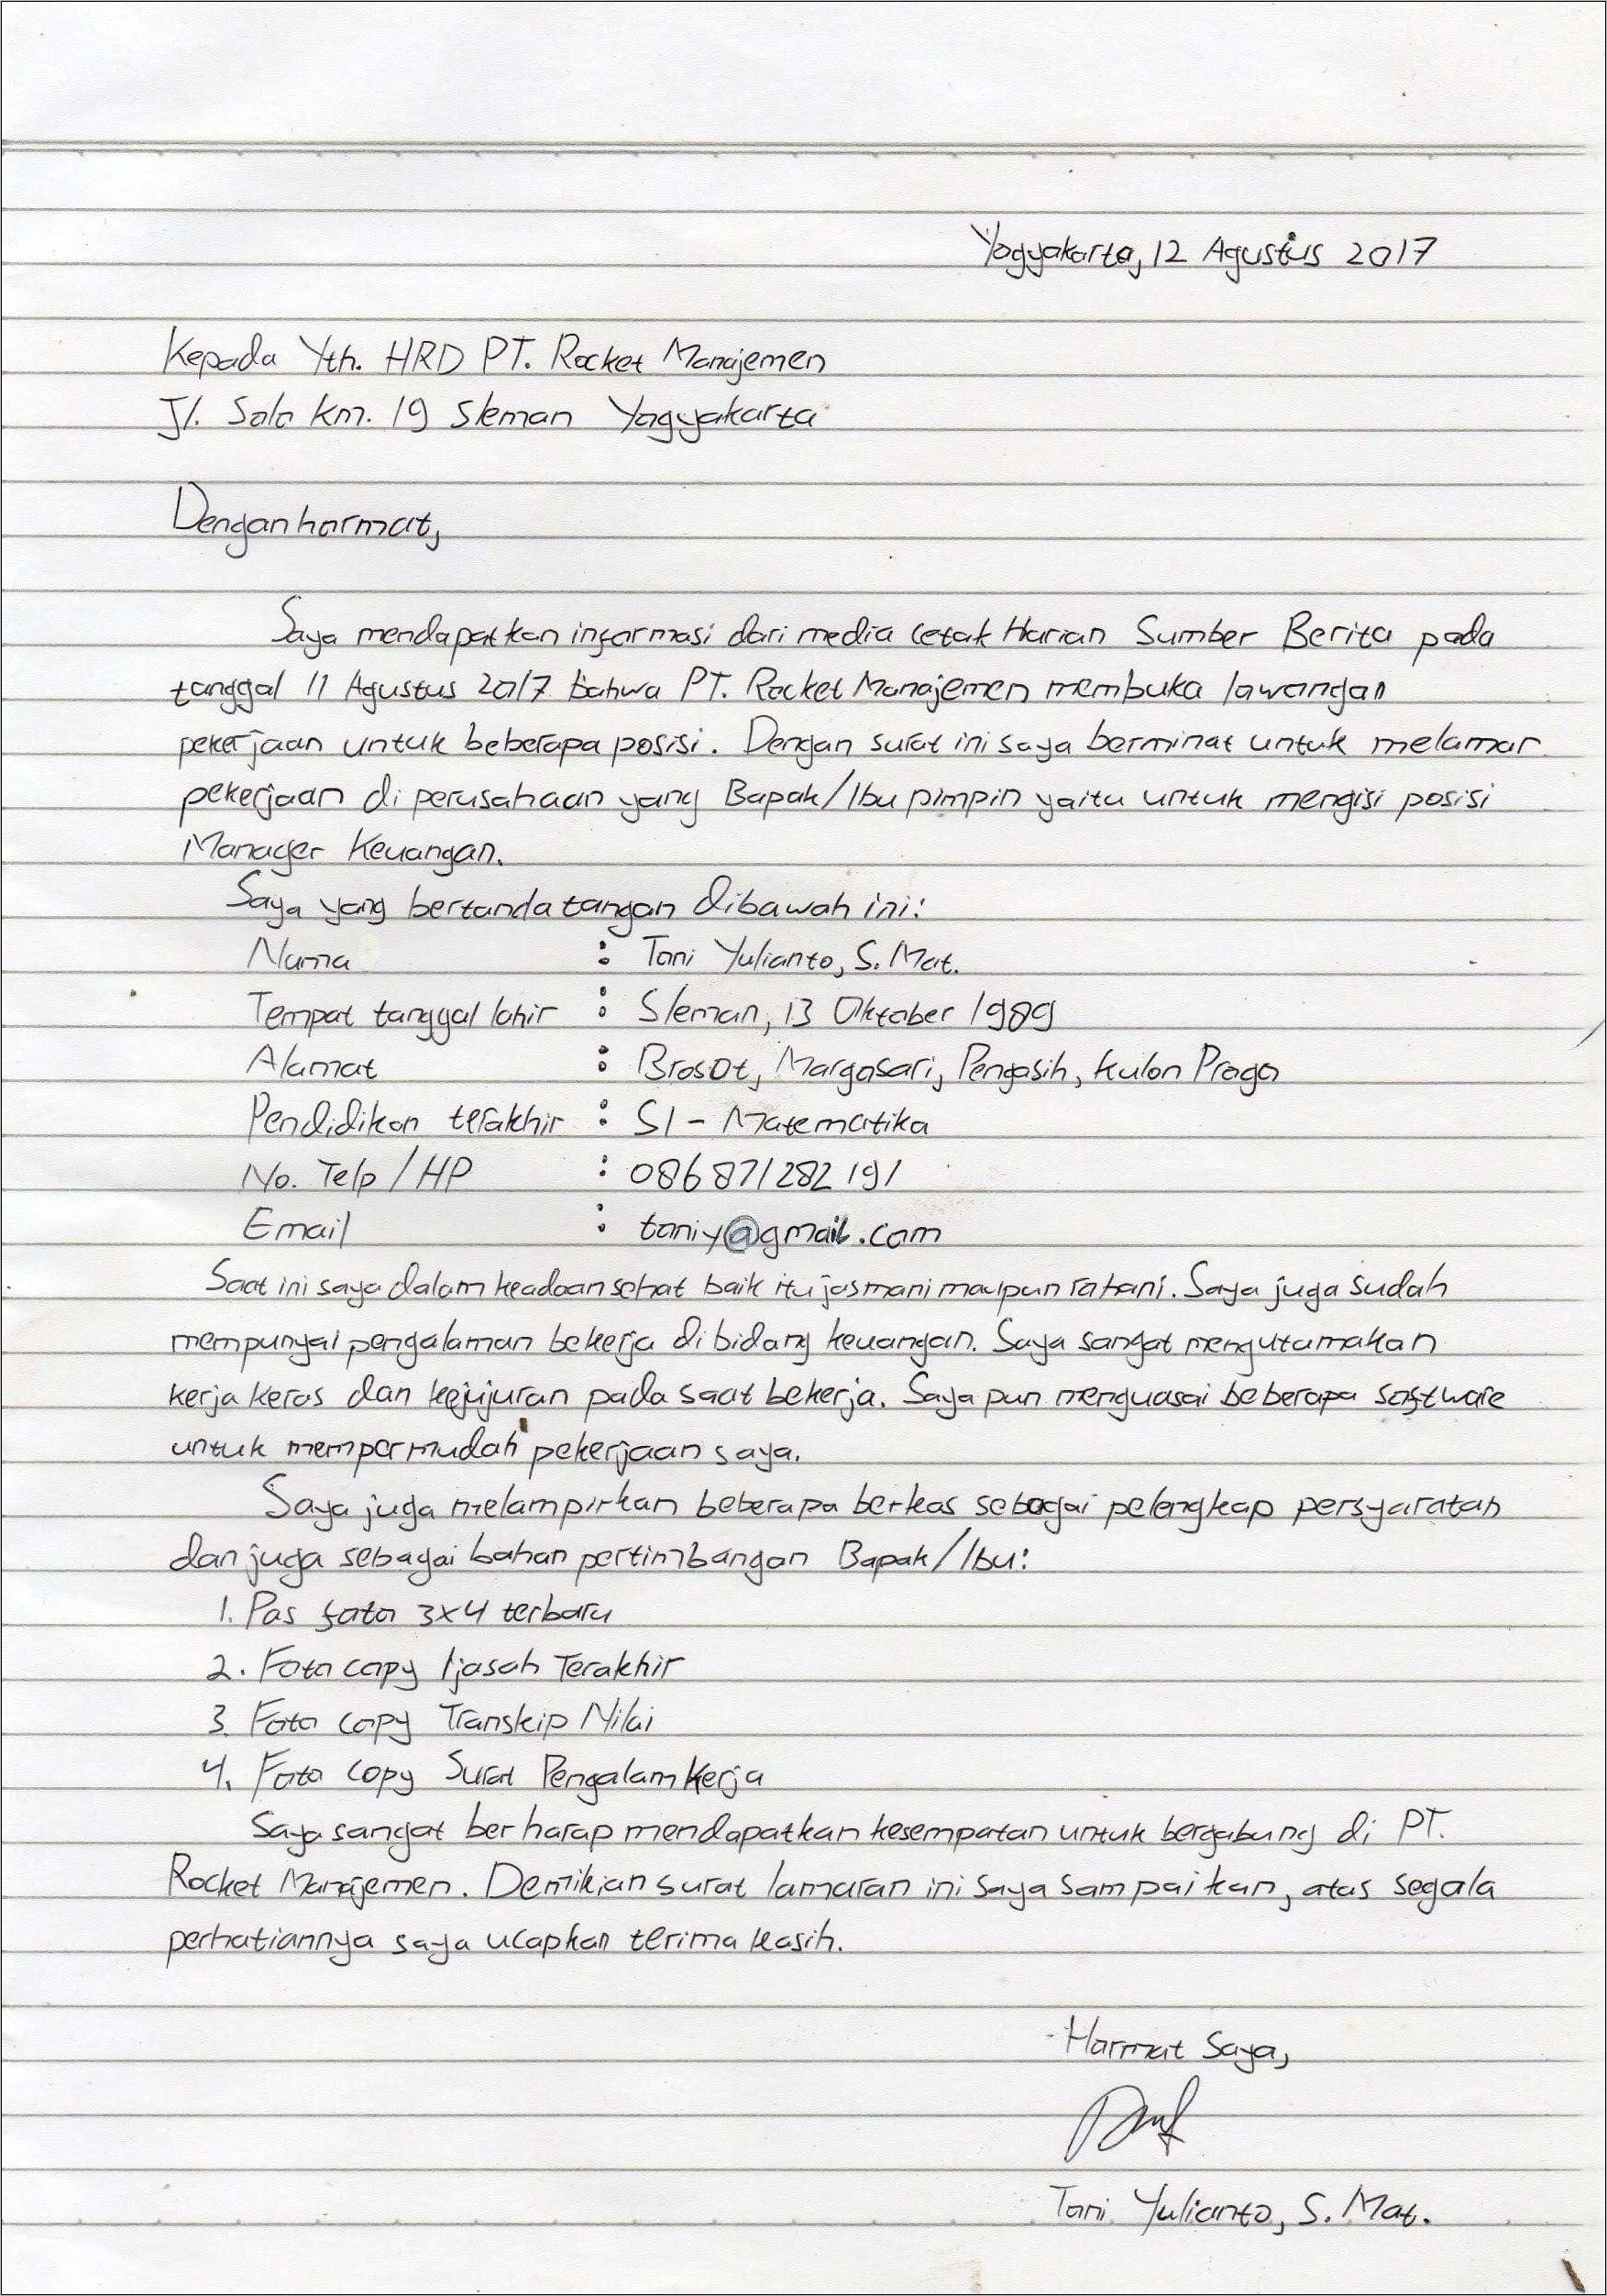 Yogyakarta, 12 Agustus 2017
Kepada Yth. HRD PT. Rocket Manajemen
Jl. Solo km. 19 Sleman Yogyakarta
Dengan hormat,
Saya mendapatkan informasi dari media cetak Harian Sumber Berita pada
tanggal 11 Agustus 2017 bahwa PT. Rocket Manajemen membuka lawangan
pekerjaan untuk beberapa posisi. Dengan surat ini saya berminat untuk melamar
pekerjaan di perusahaan yang Bapak/Ibu pimpin yaitu untuk mengisi posisi
Manager Keuangan.
Saya yang bertanda tangan dibawah ini:
Nama : Toni Yulianto, S. Mat.
Tempat tanggal lahir : Sleman, 13 Oktober 1989
Alamat : Brosot, Margosari, Pengasih, Kulon Progo
Pendidikan terakhir : S1 - Matematika
No. Telp / HP : 086 871 282 191
Email : toniy@gmail.com
Saat ini saya dalam keadaan sehat baik itu jasmani maupun rohani. Saya juga sudah
mempunyai pengalaman bekerja di bidang keuangan. Saya sangat mengutamakan
kerja keras dan kejujuran pada saat bekerja. Saya pun menguasai beberapa software
untuk mempermudah pekerjaan saya.
Saya juga melampirkan beberapa berkas sebagai pelengkap persyaratan
dan juga sebagai bahan pertimbangan Bapak/Ibu:
1. Pas foto 3x4 terbaru
2. Foto copy Ijasah Terakhir
3. Foto copy Transkip Nilai
4. Foto copy Surat Pengalam Kerja
Saya sangat berharap mendapatkan kesempatan untuk bergabung di PT.
Rocket Manajemen. Demikian surat lamaran ini saya sampaikan, atas segala
perhatiannya saya ucapkan terima kasih.
Hormat Saya,
Toni Yulianto, S. Mat.